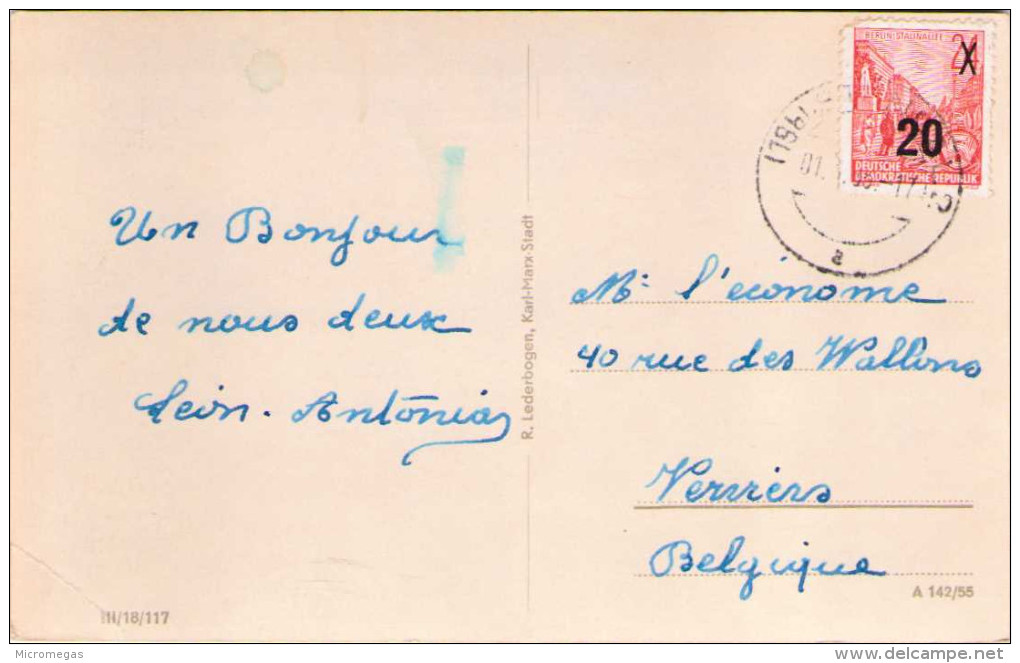 Un Bonjour
de nous deux
Léon. Antonia
R. Lederbogen, Karl-Marx-Stadt
BERLIN-STALINALLEE
20
DEUTSCHE
DEMOKRATISCHE REPUBLIK
a
Mr l'économe
40 rue des Wallons
Verviers
Belgique
III/18/117
A 142/55
Micromegas
delcampe.net